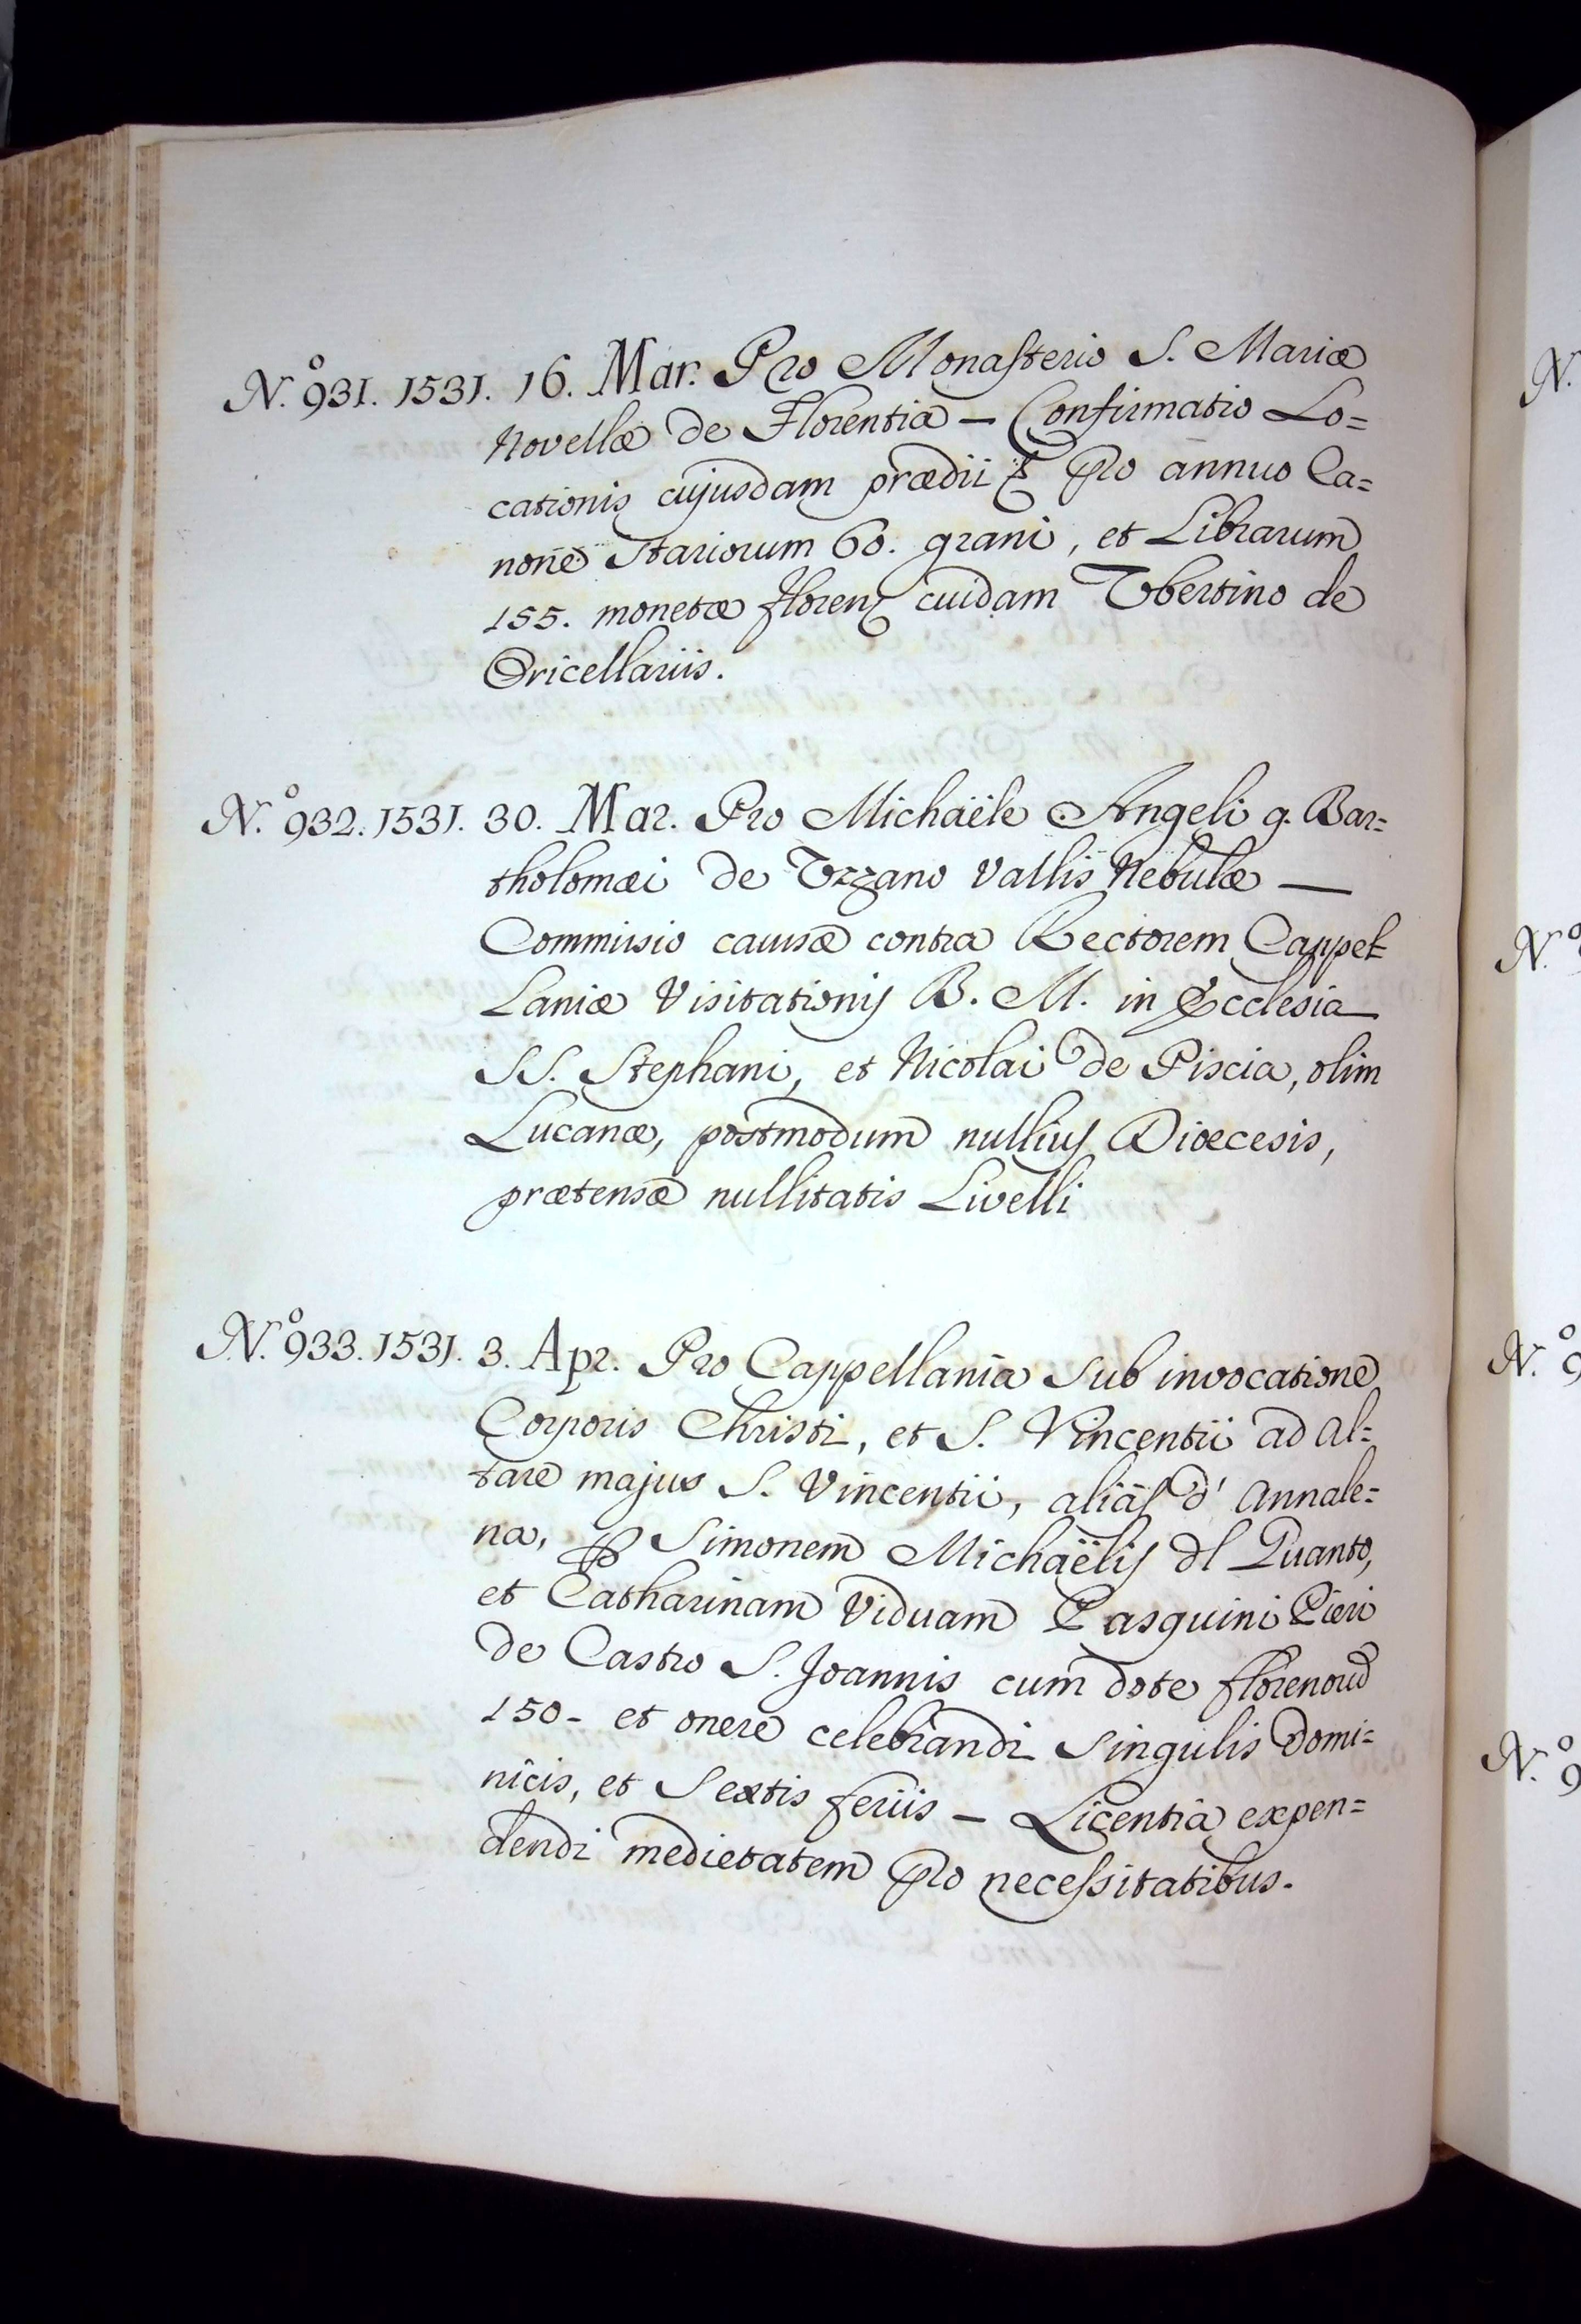 N.º 931. 1531. 16. Mar. Pro Monasterio S. Mariæ
Novellæ de Florentia — Confirmatio Lo=
cationis cujusdam prædii pro annuo Ca=
none Stariorum 60. grani, et Librarum
155. monetæ floren cuidam Ubertino de
Oricellariis.
N.º 932. 1531. 30. Mar. Pro Michaële Angeli q. Bar=
tholomæi de Uzzano Vallis Nebulæ —
Commissio causæ contra Rectorem Cappel=
Laniæ Visitationis B. M. in Ecclesia
SS. Stephani, et Nicolai de Piscia, olim
Lucanæ, postmodum nullius Diœcesis,
prætensæ nullitatis Livelli
N.º 933. 1531. 3. Apr. Pro Cappellania sub invocatione
Corporis Christi, et S. Vincentii ad Al=
tare majus S. Vincentii, aliàs d' Annale=
na, Simonem Michaëlis dl Quanto,
et Catharinam Viduam Pasquini Pieri
de Castro S. Joannis cum dote florenoru
150- et onere celebrandi singulis Domi=
nicis, et Sextis feriis — Licentia expen=
dendi medietatem pro necessitatibus.
N.
N.º
N.º 9
N.º 9